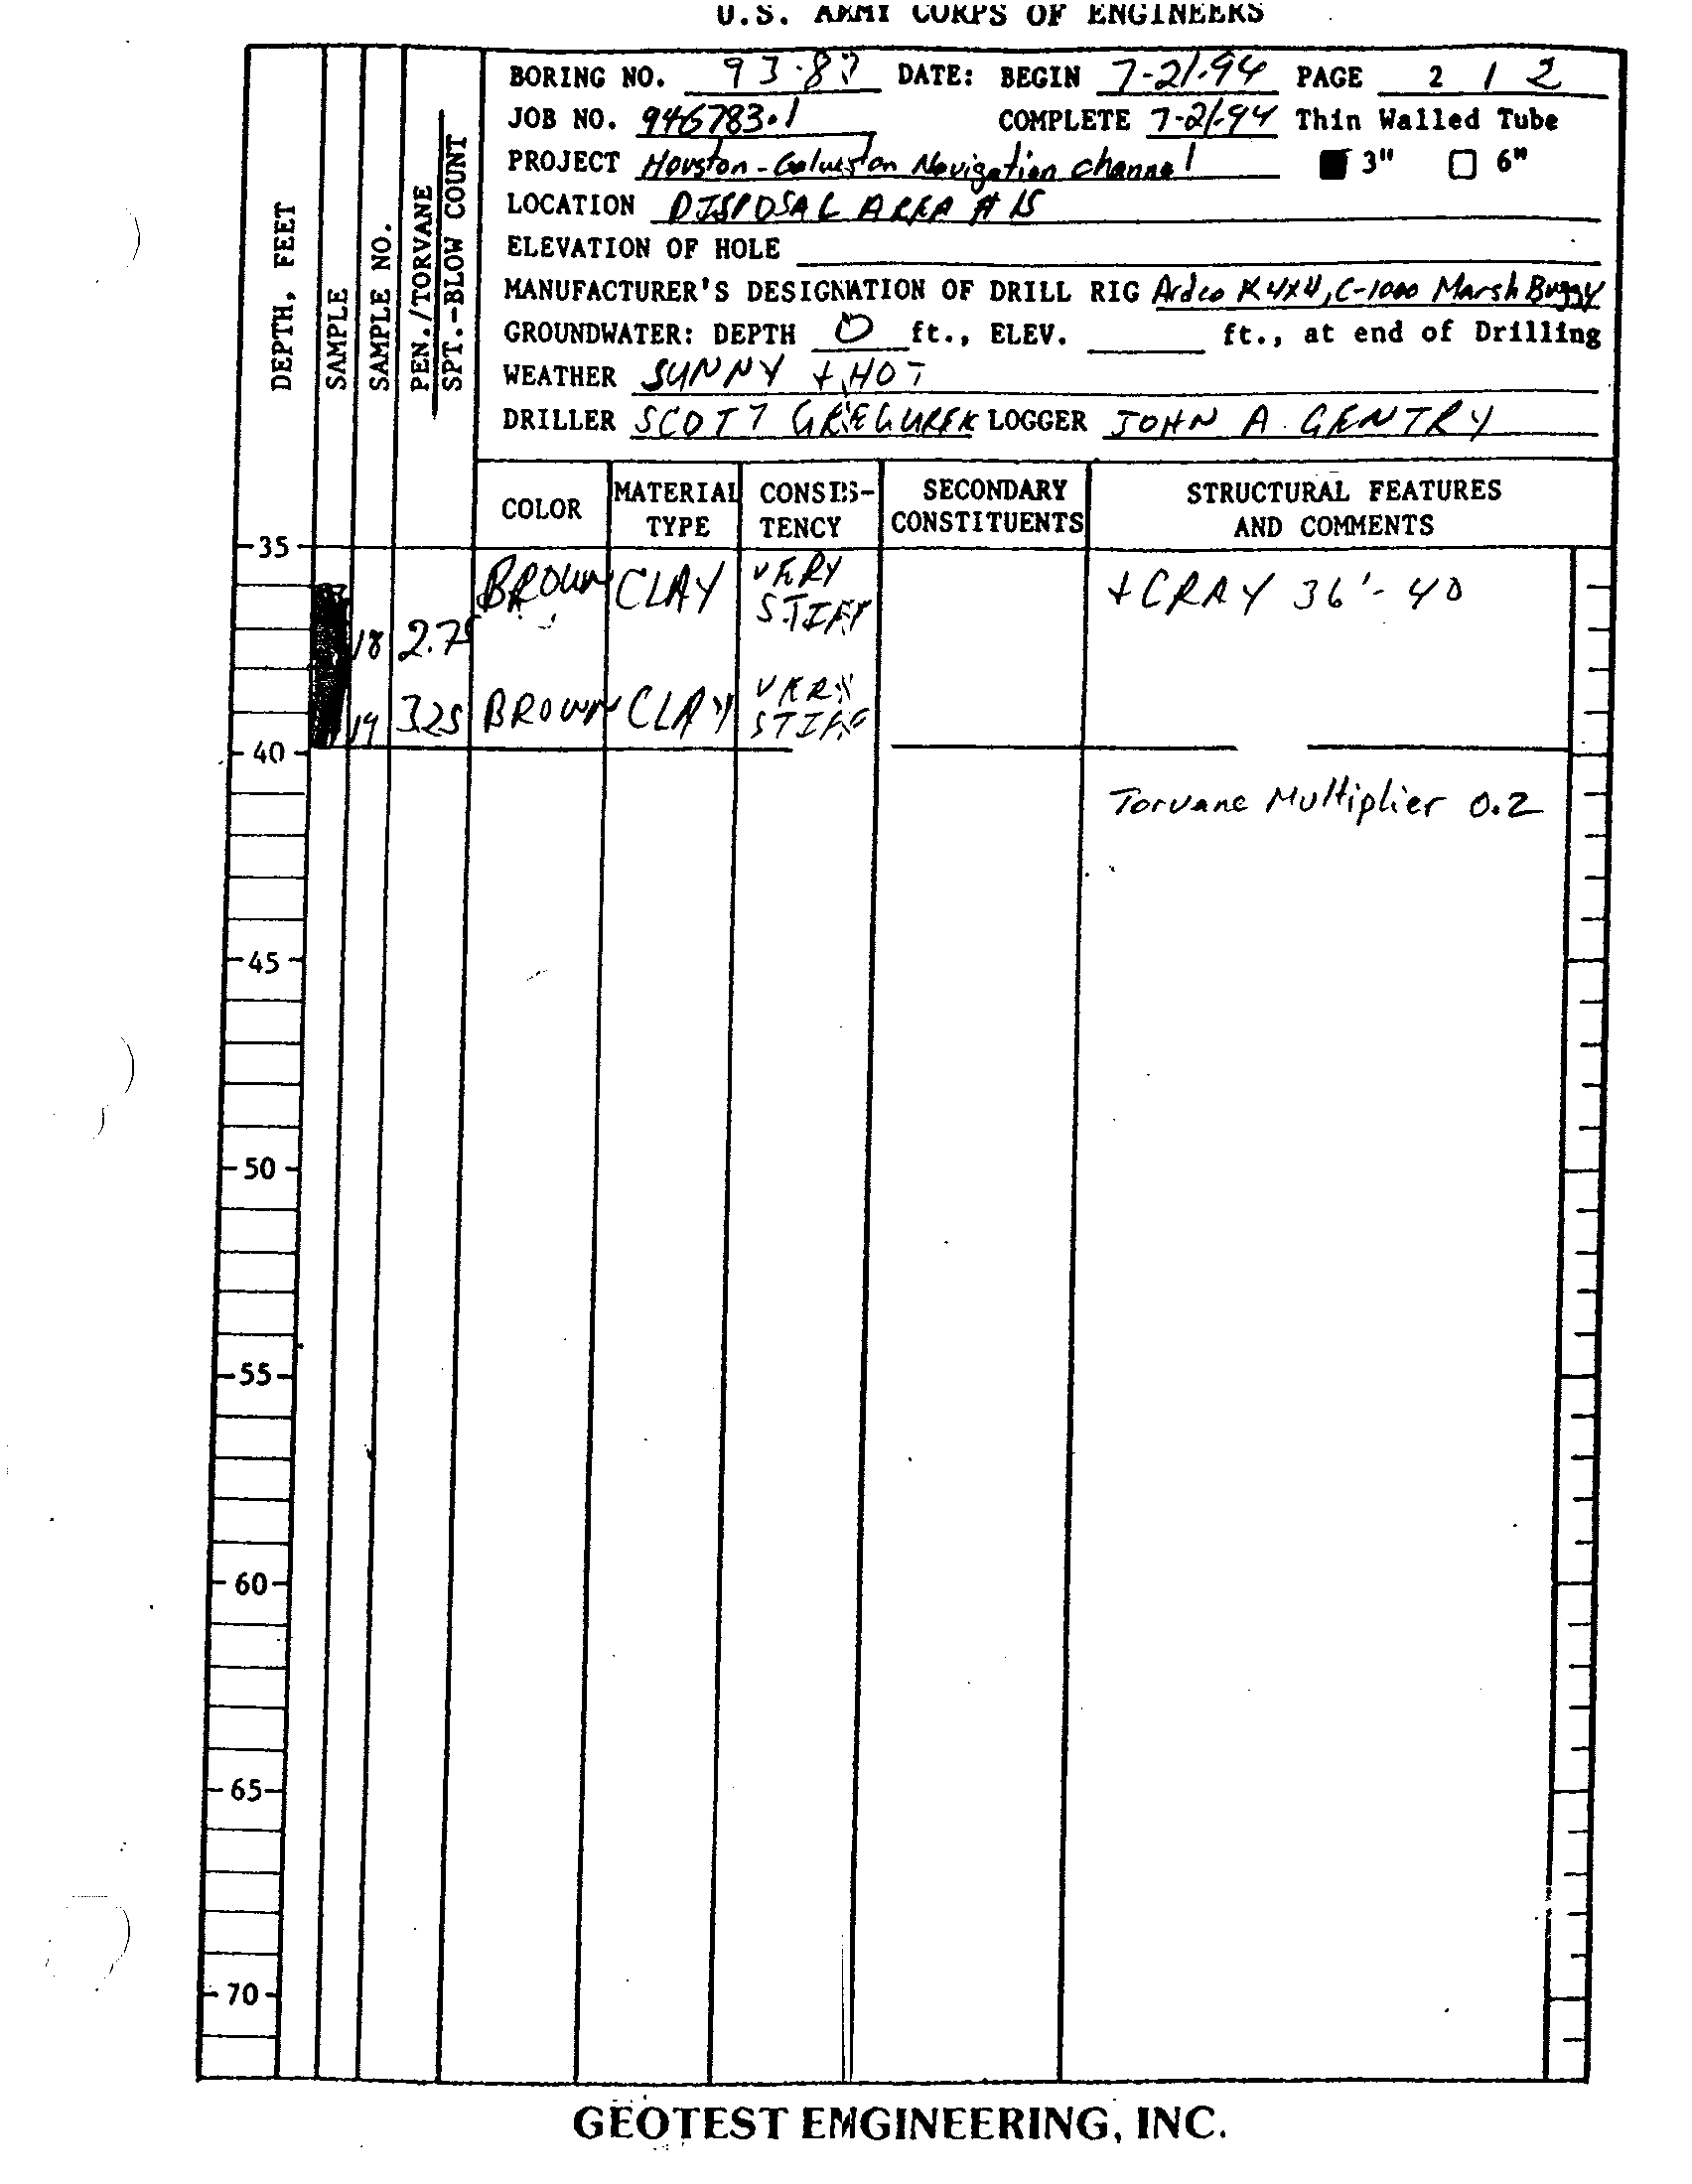 U.S. ARMY CORPS OF ENGINEERS
BORING NO. DATE: BEGIN 7-21-94 PAGE 2 / 2
JOB NO. 946783.1 COMPLETE 7-21-94 Thin Walled Tube
PROJECT Houston-Galveston Navigation channel 3" 6"
LOCATION DISPOSAL AREA # 15
ELEVATION OF HOLE
MANUFACTURER'S DESIGNATION OF DRILL RIG Ardco K 4x4, C-1000 Marsh Buggy
GROUNDWATER: DEPTH 0 ft., ELEV. ft., at end of Drilling
WEATHER SUNNY + HOT
DRILLER SCOTT GREGUREK LOGGER JOHN A. GENTRY
DEPTH, FEET
SAMPLE
SAMPLE NO.
PEN./TORVANE
SPT.-BLOW COUNT
COLOR MATERIAL TYPE CONSIS-TENCY SECONDARY CONSTITUENTS STRUCTURAL FEATURES AND COMMENTS
35
BROWN CLAY VERY STIFF + GRAY 36'- 40
18 2.75
19 3.25 BROWN CLAY VERY STIFF
40
Torvane Multiplier 0.2
45
50
55
60
65
70
GEOTEST ENGINEERING, INC.